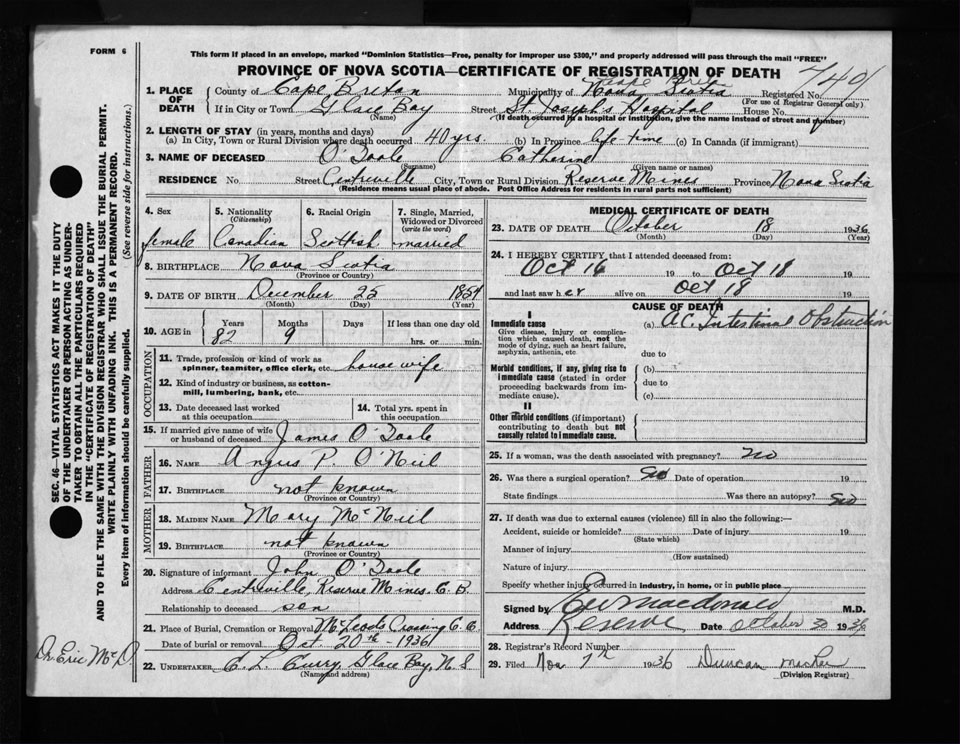 FORM 6
This form if placed in an envelope, marked "Dominion Statistics—Free, penalty for improper use $300," and properly addressed will pass through the mail "FREE"
PROVINCE OF NOVA SCOTIA—CERTIFICATE OF REGISTRATION OF DEATH
1. PLACE OF DEATH
County of Cape Breton Municipality of Nova Scotia Registered No.
(For use of Registrar General only)
If in City or Town Glace Bay Street St. Joseph's Hospital House No.
(Name) (If death occurred in a hospital or institution, give the name instead of street and number)
2. LENGTH OF STAY (in years, months and days)
(a) In City, Town or Rural Division where death occurred 40 yrs. (b) In Province life-time (c) In Canada (if immigrant)
3. NAME OF DECEASED O'Toole Catherine
(Surname) (Given name or names)
RESIDENCE No. Street Centreville City, Town or Rural Division Reserve Mines Province Nova Scotia
(Residence means usual place of abode. Post Office Address for residents in rural parts not sufficient)
4. Sex 5. Nationality (Citizenship) 6. Racial Origin 7. Single, Married, Widowed or Divorced (write the word)
female Canadian Scottish married
8. BIRTHPLACE Nova Scotia
(Province or Country)
9. DATE OF BIRTH December 25 1854
(Month) (Day) (Year)
10. AGE in Years Months Days If less than one day old
82 9 hrs. or min.
OCCUPATION
11. Trade, profession or kind of work as spinner, teamster, office clerk, etc. housewife
12. Kind of industry or business, as cotton-mill, lumbering, bank, etc.
13. Date deceased last worked at this occupation 14. Total yrs. spent in this occupation
15. If married give name of wife or husband of deceased James O'Toole
FATHER
16. NAME Angus P. O'Neil
17. BIRTHPLACE not known
(Province or Country)
MOTHER
18. MAIDEN NAME Mary McNeil
19. BIRTHPLACE not known
(Province or Country)
20. Signature of informant John O'Toole
Address Centreville, Reserve Mines. C. B.
Relationship to deceased son
21. Place of Burial, Cremation or Removal McLeods Crossing C. B.
Date of burial or removal Oct 20th - 1936
22. UNDERTAKER C. L. Curry, Glace Bay, N. S.
(Name and address)
MEDICAL CERTIFICATE OF DEATH
23. DATE OF DEATH October 18 1936
(Month) (Day) (Year)
24. I HEREBY CERTIFY that I attended deceased from:
Oct 16 19 to Oct 18 19
and last saw her alive on Oct 18 19
CAUSE OF DEATH
I
Immediate cause (a) Ac. Intestinal Obstruction
Give disease, injury or complication which caused death, not the mode of dying, such as heart failure, asphyxia, asthenia, etc
due to
Morbid conditions, if any, giving rise to immediate cause (stated in order proceeding backwards from immediate cause).
(b)
due to
(c)
II
Other morbid conditions (if important) contributing to death but not causally related to immediate cause.
25. If a woman, was the death associated with pregnancy? No
26. Was there a surgical operation? No Date of operation 19
State findings Was there an autopsy? No
27. If death was due to external causes (violence) fill in also the following:—
Accident, suicide or homicide? Date of injury 19
(State which)
Manner of injury
(How sustained)
Nature of injury
Specify whether injury occurred in industry, in home, or in public place
Signed by MacDonald M.D.
Address Reserve Date October 30 1936
28. Registrar's Record Number
29. Filed Nov 7th 1936 Duncan
(Division Registrar)
SEC. 46—VITAL STATISTICS ACT MAKES IT THE DUTY
OF THE UNDERTAKER OR PERSON ACTING AS UNDER-
TAKER TO OBTAIN ALL THE PARTICULARS REQUIRED
IN THE "CERTIFICATE OF REGISTRATION OF DEATH"
AND TO FILE THE SAME WITH THE DIVISION REGISTRAR WHO SHALL ISSUE THE BURIAL PERMIT.
WRITE PLAINLY WITH UNFADING INK. THIS IS A PERMANENT RECORD.
Every item of information should be carefully supplied. (See reverse side for instructions.)
Dr. Eric McD.